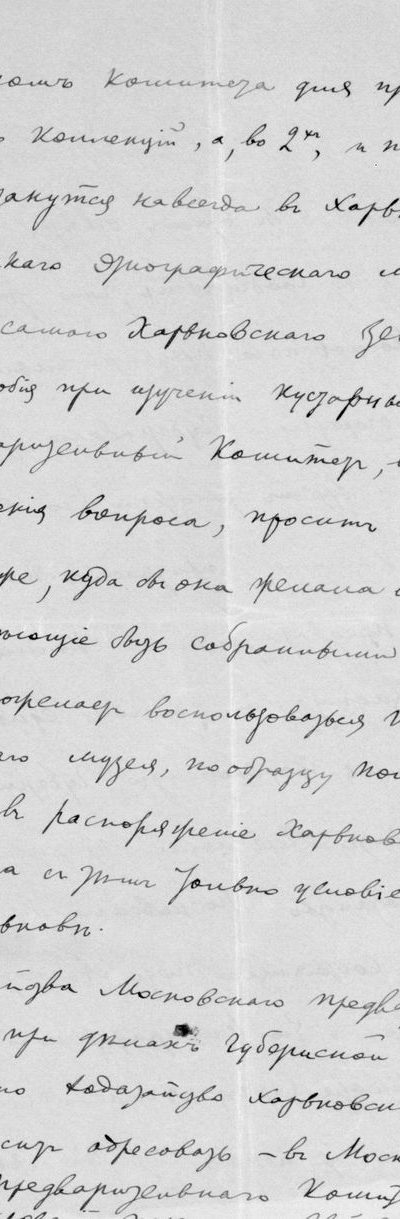 комъ Комитета для пр
ъ коллекцій, а, во 2хъ, и п
танутся навсегда въ Харьк
каго этнографическаго м
самого Харьковскаго Зе
обія при изученіи кустарны
арительный Комитет,
енія вопроса, просит
ре, куда бы она желала
ующіе быть собранными
ожелает воспользоваться
го музея, по образцу
въ распоряженіе Харьков
а съ этим только условіе
ьковъ.
йства Московскаго предва
при дѣлахъ Губернской
но ходатайство Харьковск
сит адресовать – въ Моск
Предварительнаго Комит